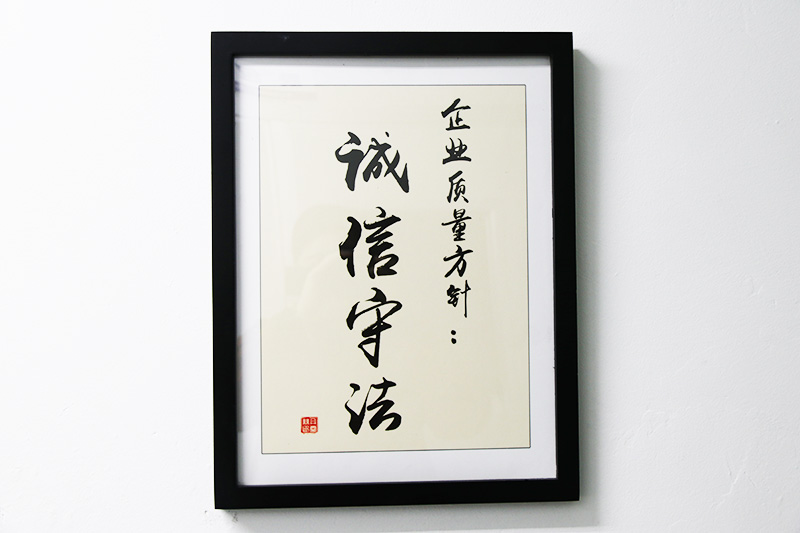 企业质量方针：
诚信守法